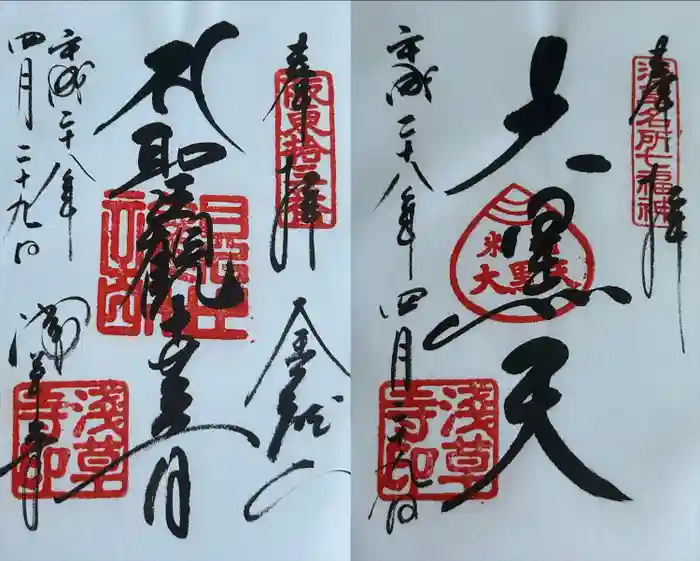 奉拝
坂東拾三番
金龍山
聖観世音
平成二十八年
四月二十九日
浅草寺
淺草
寺印
奉拝
浅草名所七福神
大黒天
大黒天
平成二十八年四月二十九日
淺草
寺印